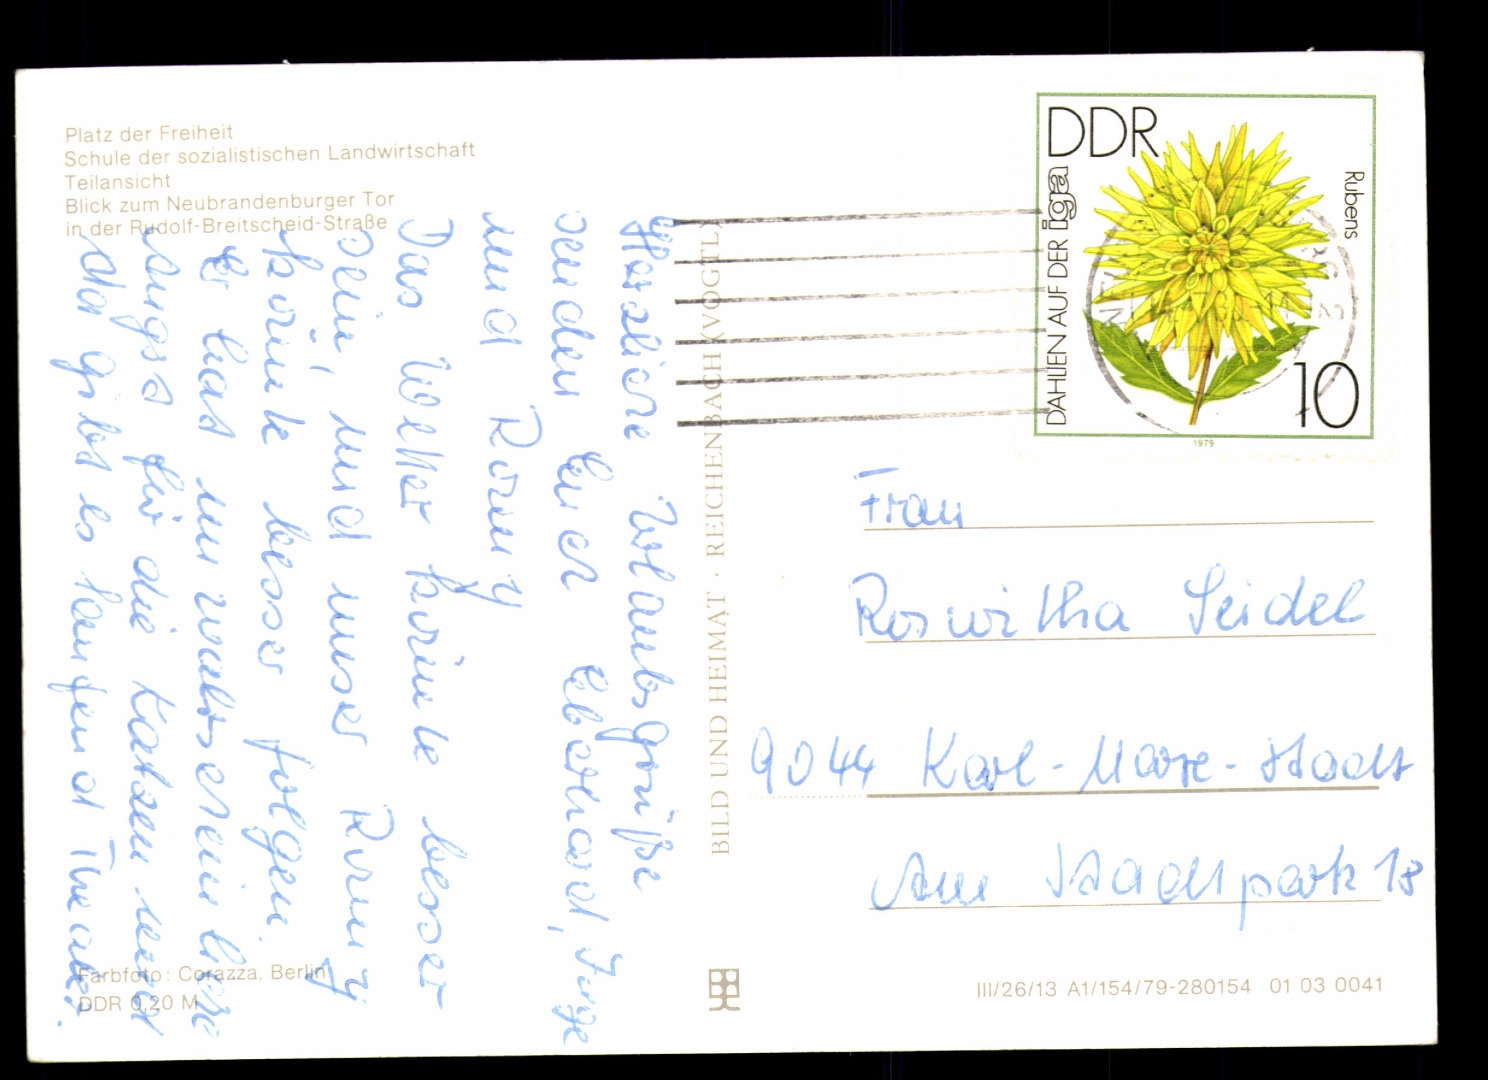 Platz der Freiheit
Schule der sozialistischen Landwirtschaft
Teilansicht
Blick zum Neubrandenburger Tor
in der Rudolf-Breitscheid-Straße
Herzliche Urlaubsgrüße
senden Euch Eberhard, Inge
und Romy
Das Wetter könnte besser
sein, und unser Romy
könnte besser folgen.
Er hat unwahrscheinliche
Angst für die Katzen und
da gibt es laufend Theater.
Farbfoto: Corazza, Berlin
DDR 0,20 M
BILD UND HEIMAT · REICHENBACH (VOGTL)
DDR
DAHLIEN AUF DER iga
Rubens
10
1979
Frau
Roswitha Seidel
9044 Karl-Marx-Stadt
Am Stadtpark 18
III/26/13 A1/154/79-280154 01 03 0041